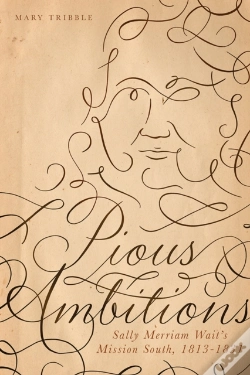 MARY TRIBBLE
Pious
Ambitions
Sally Merriam Wait's
Mission South, 1813-